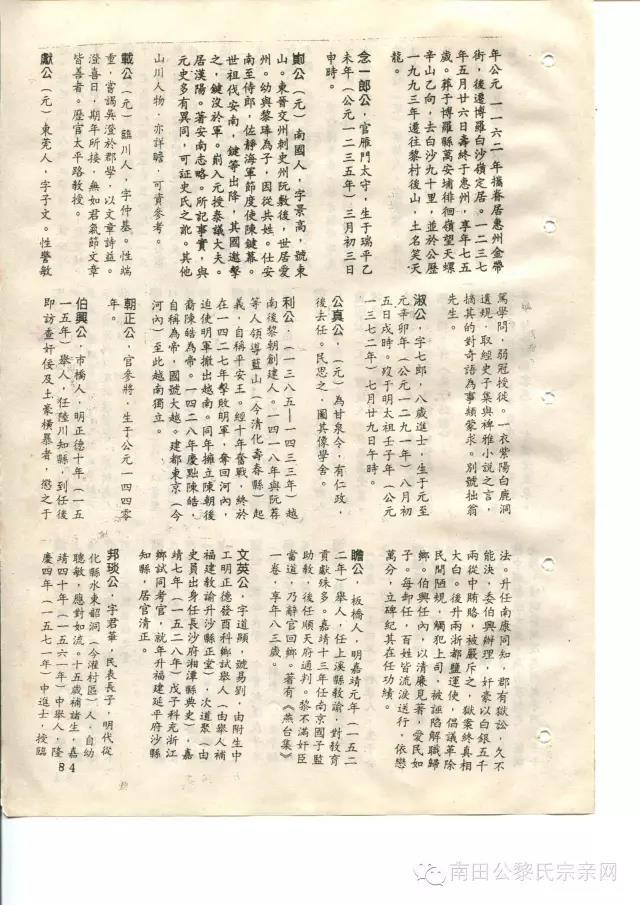 年公元一一六二年攜眷居惠州金帶
街，後遷博羅白沙嶺定居。一二三七
年五月廿六日壽終于惠州，享年七五
歲。葬于博羅縣萬安埔徘徊嶺望天螺
辛山乙向，去白沙九十里，並於公歷
一九九三年遷往黎村後山，土名笑天
龍。
念一郎公，官雁門太守，生于瑞平乙
未年（公元一二三五年）三月初三日
申時。
崱公（元）南國人，字景高，號東
山。東晉交州刺史州阮敷後，世居愛
州。幼與黎琫為子，因從共姓。仕安
南至侍郎，佐靜海軍節度使陳鍵幕。
世祖伐安南，鍵等出降，其國邀擊
之，鍵沒於軍。崱入元授泰議大夫。
居漢陽。著安南志略。所記事實，與
元史多有異同，可証史氏之訛。其他
山川人物，亦詳瞻，可資參考。
戴公（元）臨川人，字仲基。性端
重，嘗謁吳澄於郡學，以文章詩益。
澄喜曰，期年所接，無如君氣節文章
皆善者。歷官太平路教授。
獻公（元）東莞人，字子文。性警敏
篤學問，弱冠授徒。一衣紫陽白鹿洞
遺規，取經史子集與稗雅小說之言，
摘其的對奇語為事類蒙求。別號拙翁
先生。
淑公，字七郎，八歲進士，生于元至
元辛卯年（公元一二九一年）八月初
五日戌時。歿于明太祖壬子年（公元
一三七二年）七月廿九日午時。
公真公，（元）為甘泉令，有仁政，
後去任。民思之，圖其像學舍。
利公，（一三八五—一四三三年）越
南後黎朝創建人。一四一八年與阮薦
等人領導藍山（今清化壽春縣）起
義，自稱平安王。經十年奮戰，終於
在一四二七年擊敗明軍，奪回河內，
迫使明軍撤出越南。同年擁立陳朝後
裔陳皓為帝。一四二八年慶點陳皓，
自稱為帝，國號大越。建都東京（今
河內）至此越南獨立。
朝正公，官參將，生于公元一四四零
年。
伯興公，市橋人，明正德十年（一五
一五年）舉人，任陸川知縣，到任後
即訪查奸佞及土豪橫暴者，懲之于
法。升任南康同知，郡有獄訟，久不
能決，委伯興辦理，奸豪以白銀五千
兩從中賄賂，被嚴斥之，獄案終真相
大白。後升兩浙都鹽運使，倡議革除
民間陋規，觸犯上司，被誣陷解職歸
鄉。伯興任內，以清廉見著，愛民如
子。每卸任，百姓皆流淚送行，依戀
萬分，立碑紀其在任功績。
瞻公，板橋人，明嘉靖元年（一五二
二年）舉人，任上溪縣教諭，對教育
貢獻殊多。嘉靖十三年任南京國子監
助教，後任順天府通判。黎不滿奸臣
當道，乃辭官回鄉。著有《燕台集》
一卷，享年八三歲。
文英公，字道顯，號易劉，由附生中
工明正德發酉科鄉試舉人（由舉人補
福建教諭升沙縣正堂），次道聚（由
史員出身任長沙府湘潭縣典史），嘉
靖七年（一五二八年）戊子科充浙江
鄉試同考官，就年升福建延平府沙縣
知縣，居官清正。
邦琰公，字君華，民表長子，明代從
化縣水東韶洞（今灌村區）人，自幼
聰敏，應對如流。十五歲補諸生，嘉
靖四十年（一五六一年）中舉人，隆
慶四年（一五七一年）中進士，授臨
84
南田公黎氏宗亲网